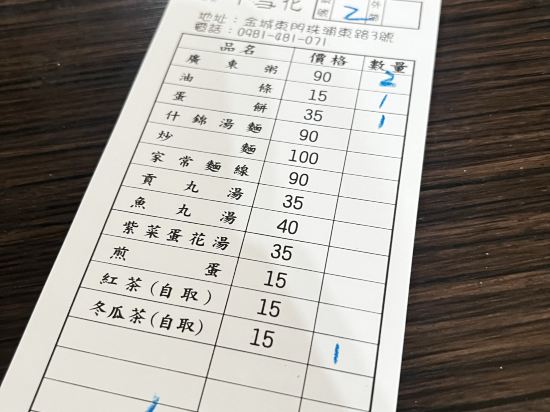 雪花
外帶
2
地址：金城東門珠浦東路3號
電話：0981-481-071
品名 價格 數量
廣東粥 90 2
油條 15 1
蛋餅 35 1
什錦湯麵 90
炒麵 100
家常麵線 90
貢丸湯 35
魚丸湯 40
紫菜蛋花湯 35
煎蛋 15
紅茶(自取) 15
冬瓜茶(自取) 15 1